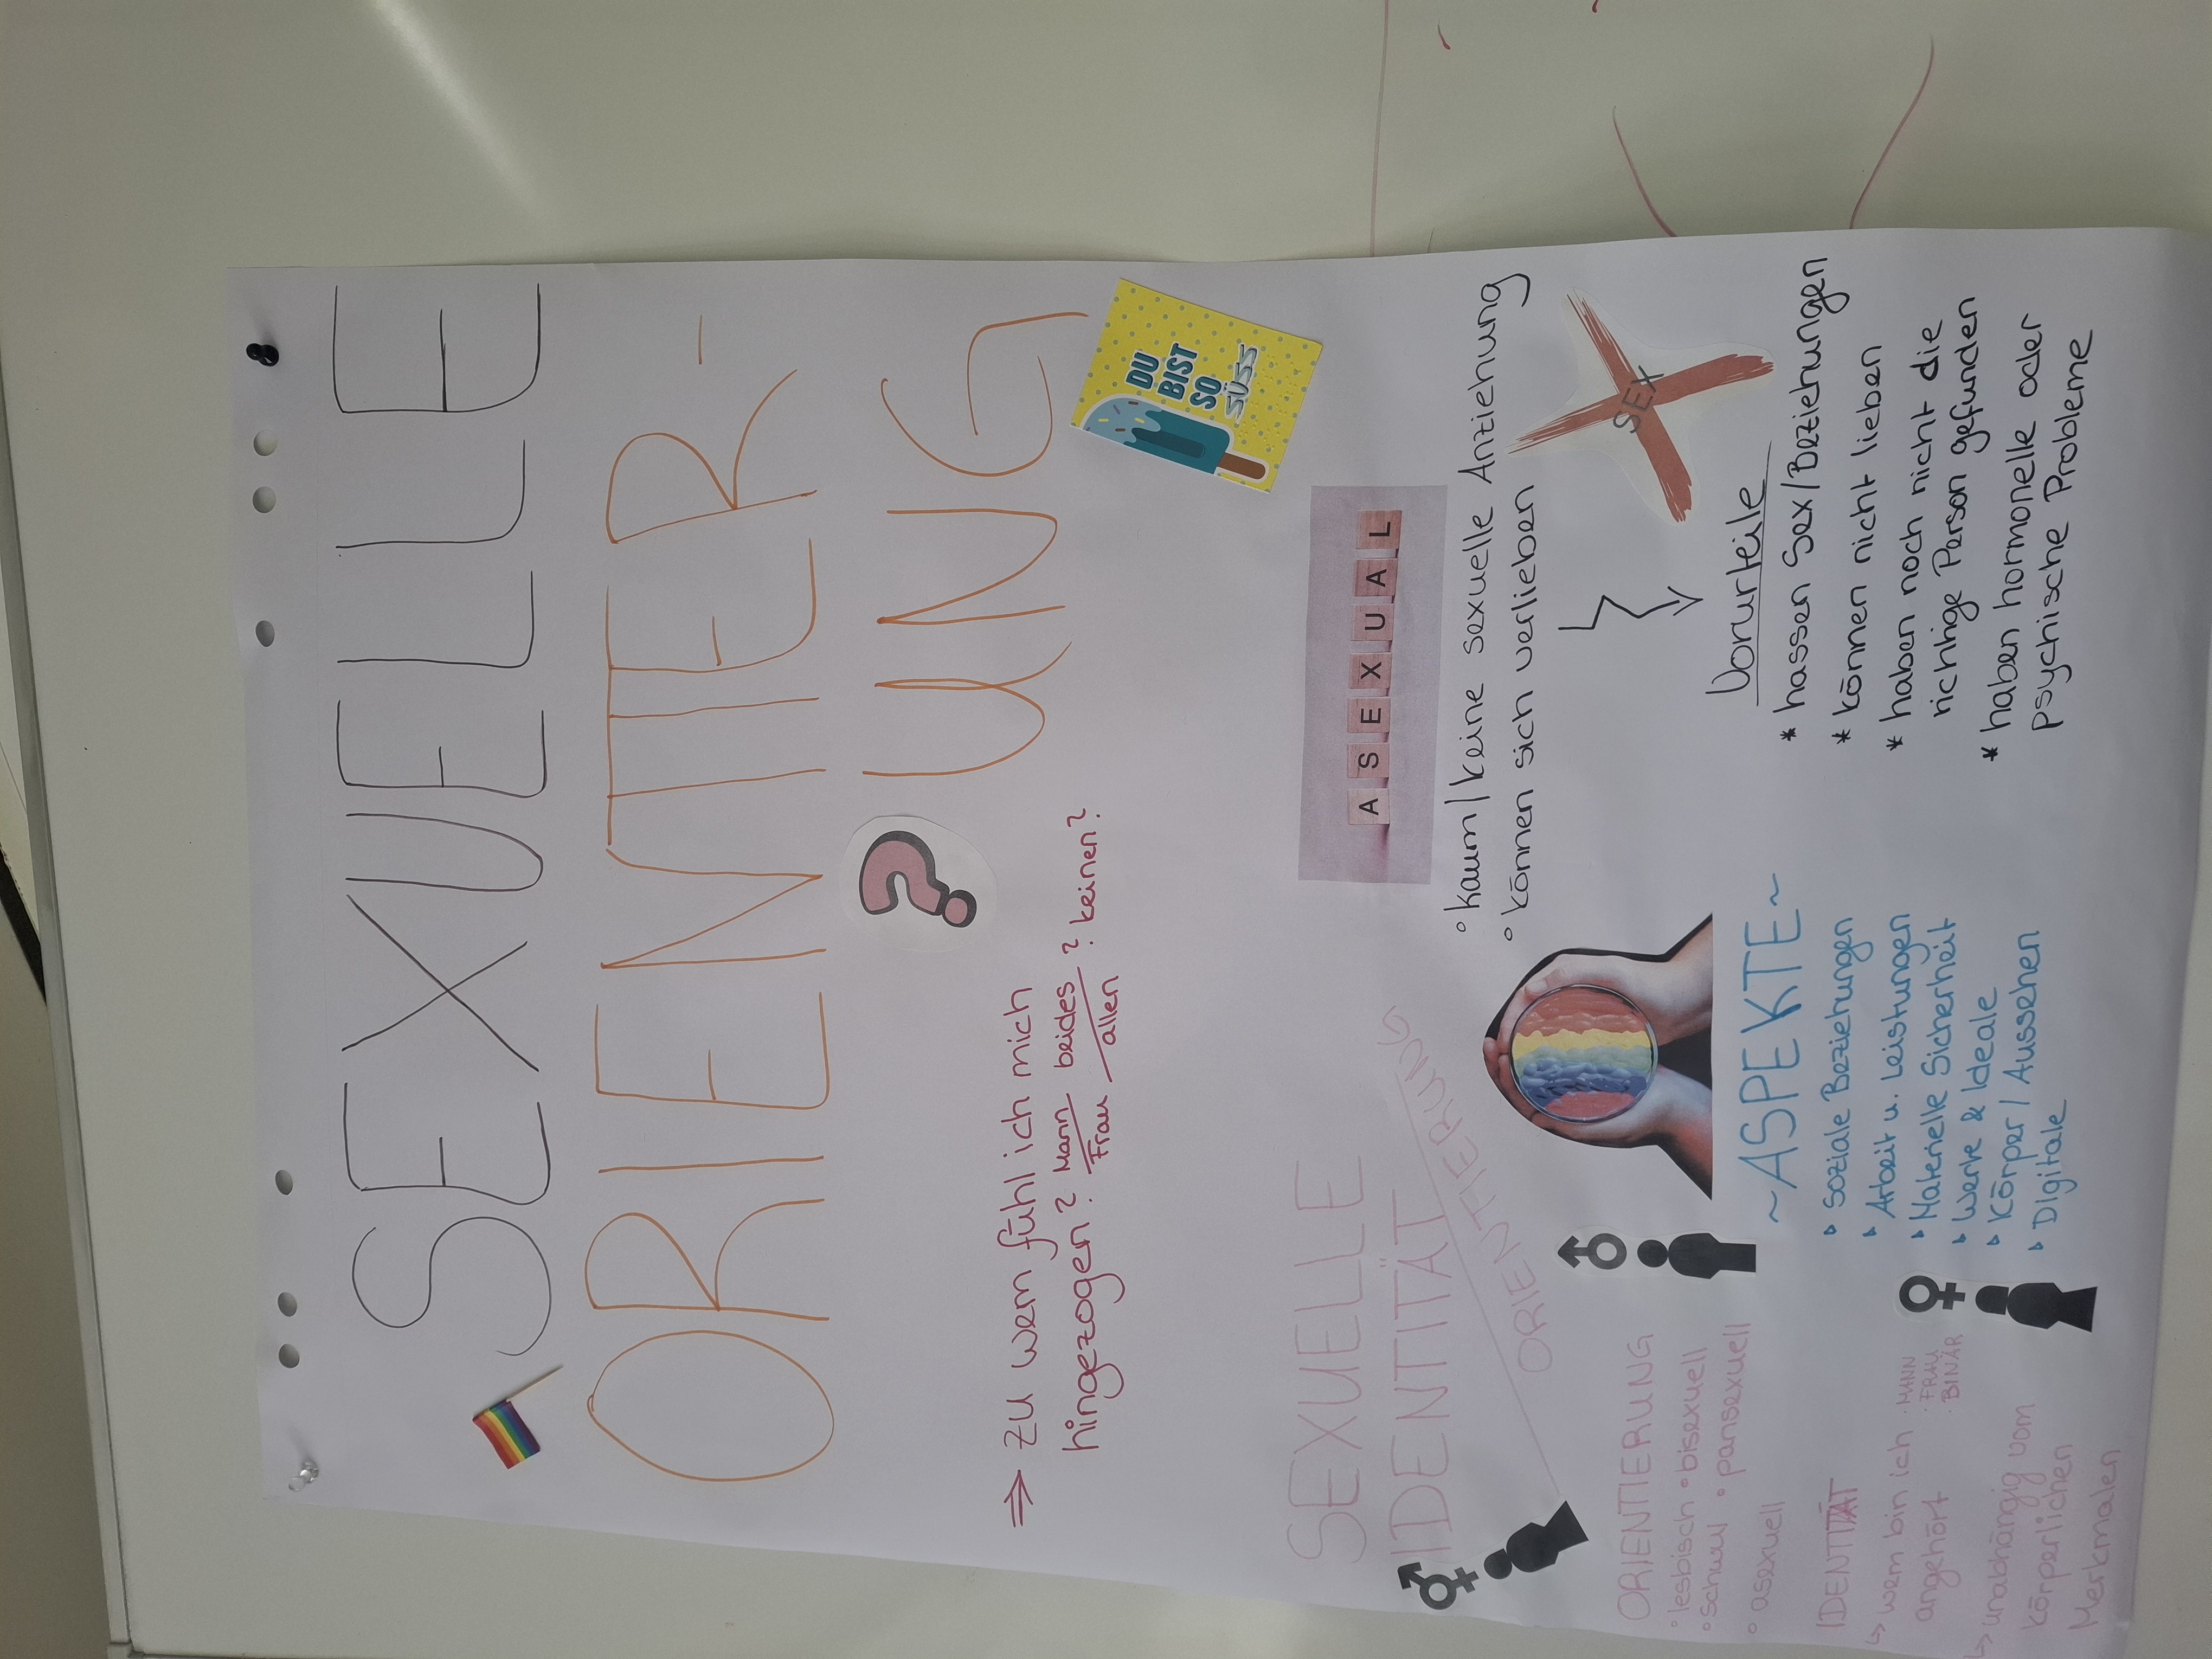 SEXUELLE
ORIENTIER-
UNG
DU
BIST
SO
SÜSS
⇒ ZU wem fühl ich mich
hingezogen? Mann beides? keinen?
Frau allen?
SEXUELLE
IDENTITÄT
ORIENTIERUNG
ORIENTIERUNG
° lesbisch ° bisexuell
° schwul ° pansexuell
° asexuell
IDENTITÄT
↳ wem bin ich · MANN
angehört · FRAU
· BINÄR
↳ unabhängig vom
körperlichen
Merkmalen
~ASPEKTE~
Soziale Beziehungen
Arbeit u. Leistungen
Materielle Sicherheit
Werte & Ideale
Körper / Aussehen
Digitale
ASEXUAL
° kaum/keine sexuelle Anziehung
° können sich verlieben
SEX
Vorurteile
* hassen Sex/Beziehungen
* können nicht lieben
* haben noch nicht die
richtige Person gefunden
* haben hormonelle oder
psychische Probleme